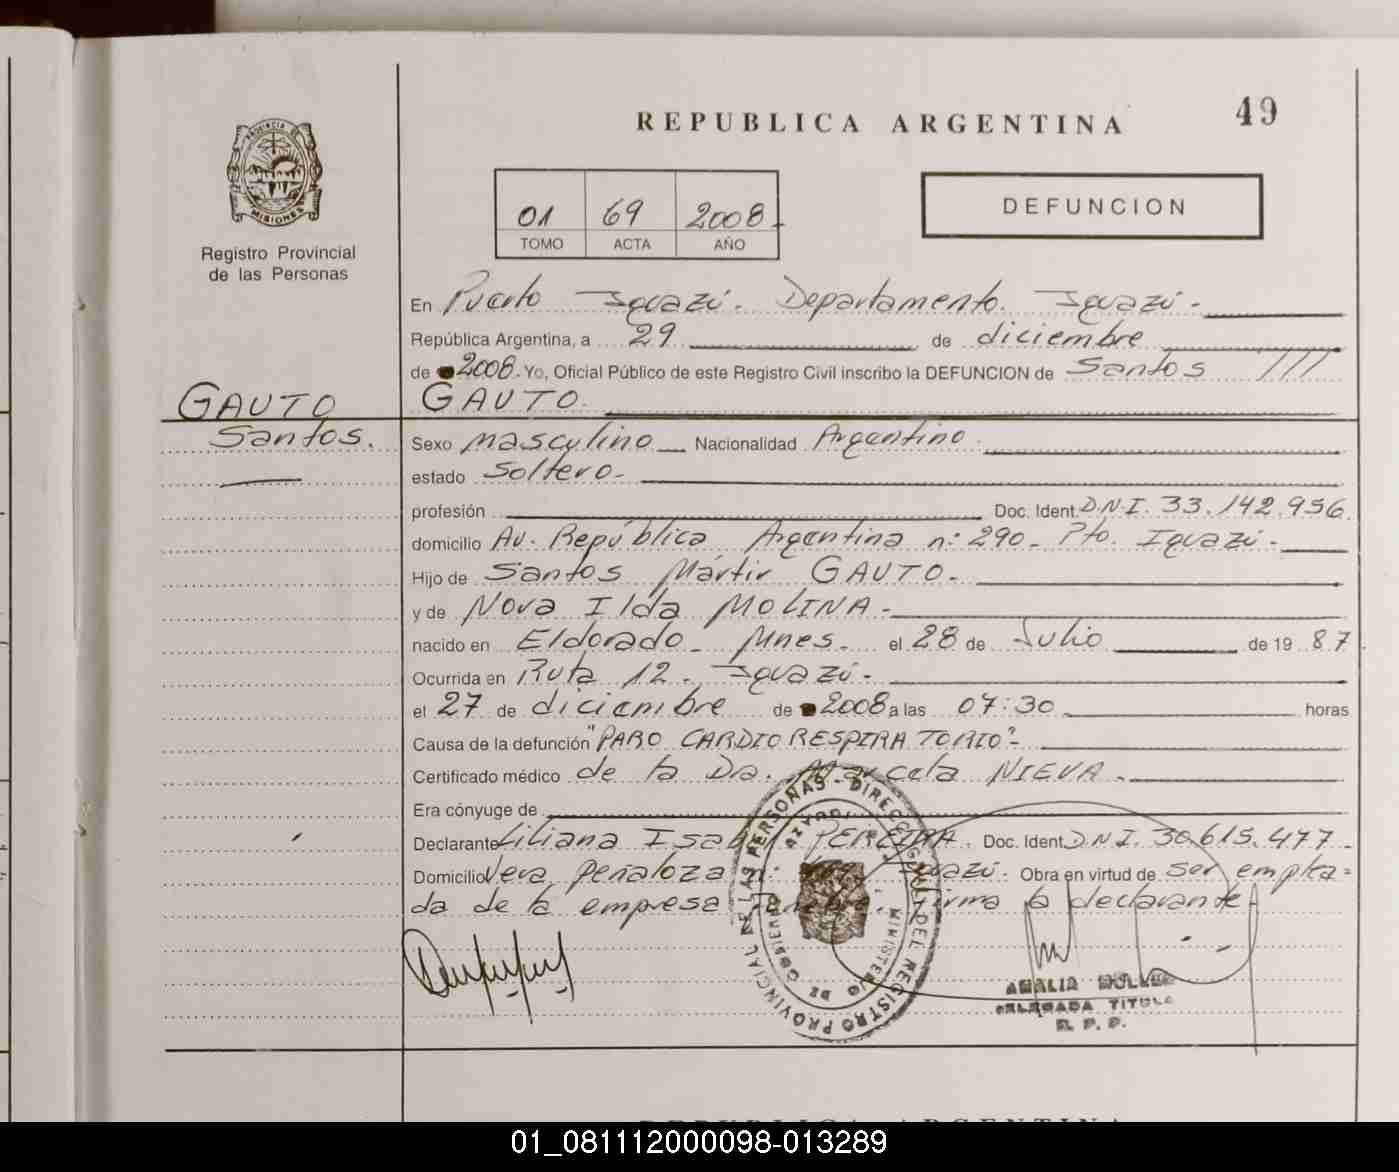 49
REPUBLICA ARGENTINA
PROVINCIA DE
MISIONES
Registro Provincial
de las Personas
01 69 2008-
TOMO ACTA AÑO
DEFUNCION
En Puerto Iguazú. Departamento. Iguazú-
República Argentina, a 29 de diciembre
de 2008. Yo, Oficial Público de este Registro Civil inscribo la DEFUNCION de Santos ///
GAUTO
GAUTO.
Santos.
Sexo masculino Nacionalidad Argentino.
estado Soltero-
profesión Doc. Ident. D.N.I. 33.142.956
domicilio Av. República Argentina n: 290- Pto. Iguazú-
Hijo de Santos Mártir GAUTO-
y de Nora Ilda MOLINA-
nacido en Eldorado- Mnes. el 28 de Julio de 19 87
Ocurrida en Ruta 12. Iguazú-
el 27 de diciembre de 2008 a las 07:30 horas
Causa de la defunción "PARO CARDIO RESPIRATORIO"-
Certificado médico de la Dra. Marcela NIEVA-
Era cónyuge de
Declarante Liliana Isabel PEREIRA. Doc. Ident. D.N.I. 30.615.477-
Domicilio Vera Peñaloza n: Iguazú. Obra en virtud de ser emplea=
da de la empresa fúnebre. Firma la declarante-
REGISTRO PROVINCIAL DE LAS PERSONAS - DIREC. GRAL. DEL
MINISTERIO DE GOBIERNO
IGUAZU
AMALIA
DELEGADA TITULAR
R. P. P.
REPUBLICA ARGENTINA
01_081112000098-013289